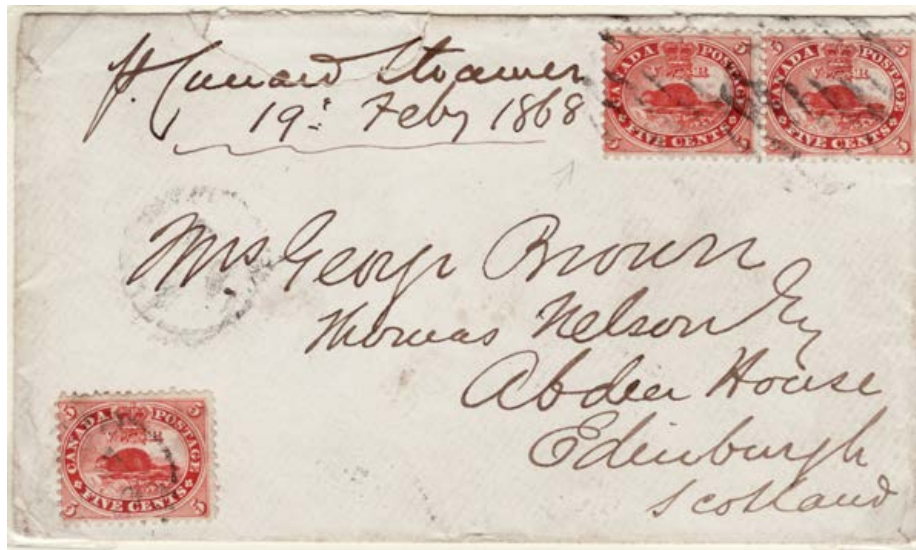 p. Cunard Steamer
19: Feby 1868
CANADA POSTAGE
5 5
V R
FIVE CENTS
5 5
CANADA POSTAGE
5 5
V R
FIVE CENTS
5 5
Mrs George Brown
Thomas Nelson Esq
Abden House
Edinburgh
Scotland
CANADA POSTAGE
5 5
V R
FIVE CENTS
5 5